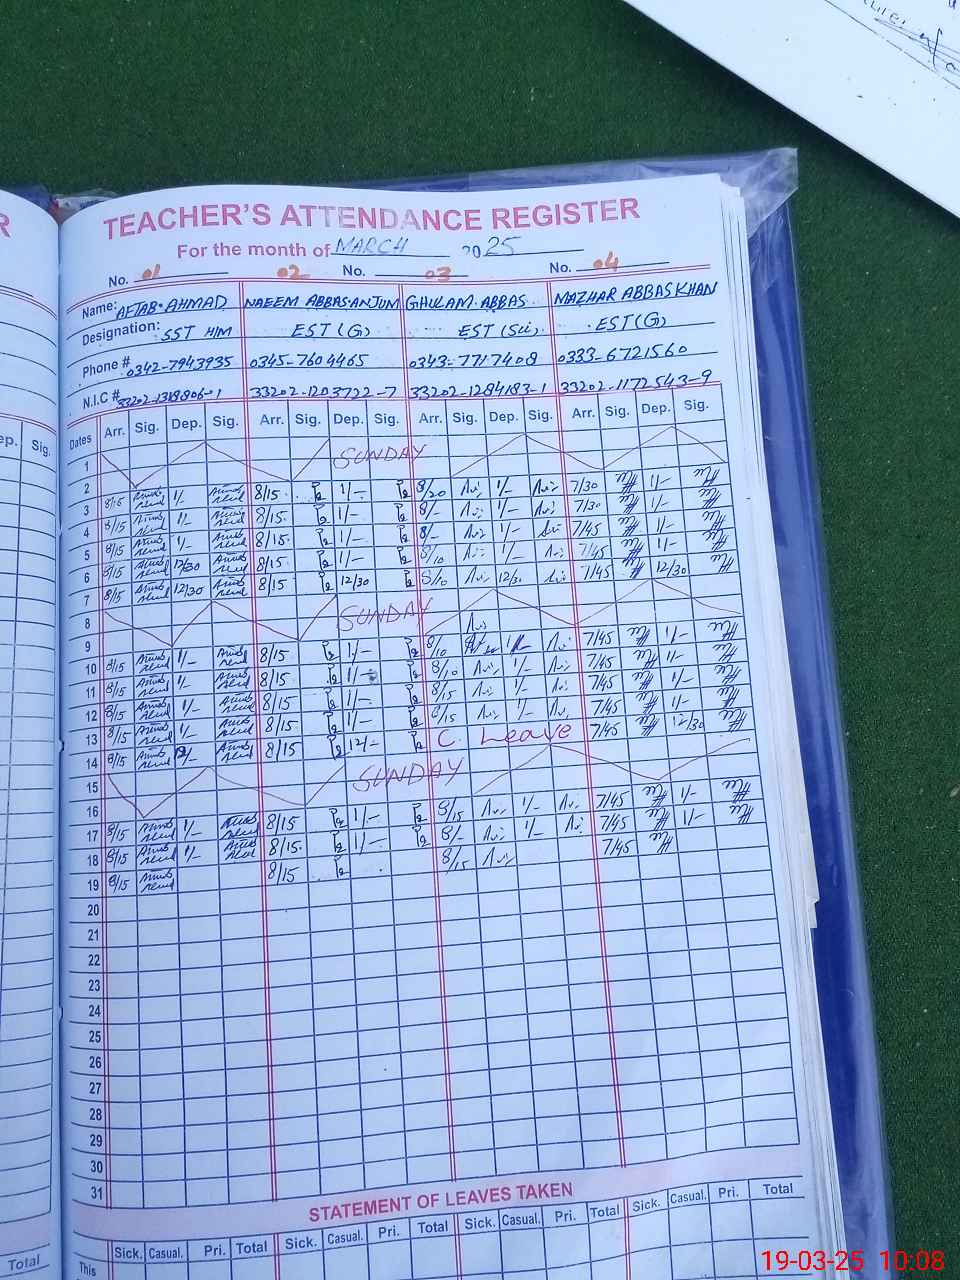 TEACHER'S ATTENDANCE REGISTER
For the month of MARCH 2025
No. 01 02 No. 03 No. 04
Name: AFTAB AHMAD NAEEM ABBAS ANJUM GHULAM ABBAS MAZHAR ABBAS KHAN
Designation: SST H/M EST (G) EST (Sci) EST (G)
Phone # 0342-7943935 0345-7604465 0343-7717408 0333-6721560
N.I.C # 33202-1318806-1 33202-1203722-7 33202-1284183-1 33202-1172543-9
Dates Arr. Sig. Dep. Sig. Arr. Sig. Dep. Sig. Arr. Sig. Dep. Sig. Arr. Sig. Dep. Sig.
1
2 SUNDAY
3 8/15 1/- 8/15 1/- 8/20 1/- 7/30 1/-
4 8/15 1/- 8/15 1/- 8/- 1/- 7/30 1/-
5 8/15 1/- 8/15 1/- 8/- 1/- 7/45 1/-
6 8/15 12/30 8/15 1/- 8/10 1/- 7/45 1/-
7 8/15 12/30 8/15 12/30 8/10 12/30 7/45 12/30
8
9 SUNDAY
10 8/15 1/- 8/15 1/- 8/10 7/45 1/-
11 8/15 1/- 8/15 1/- 8/10 1/- 7/45 1/-
12 8/15 1/- 8/15 1/- 8/15 1/- 7/45 1/-
13 8/15 1/- 8/15 1/- 8/15 1/- 7/45 1/-
14 8/15 12/- 8/15 12/- C. Leave 7/45 12/30
15
16 SUNDAY
17 8/15 1/- 8/15 1/- 8/15 1/- 7/45 1/-
18 8/15 1/- 8/15 1/- 8/- 1/- 7/45 1/-
19 8/15 8/15 8/15 7/45
20
21
22
23
24
25
26
27
28
29
30
31
STATEMENT OF LEAVES TAKEN
Sick. Casual. Pri. Total Sick. Casual. Pri. Total Sick. Casual. Pri. Total Sick. Casual. Pri. Total
This
R
ep. Sig.
Total
19-03-25 10:08